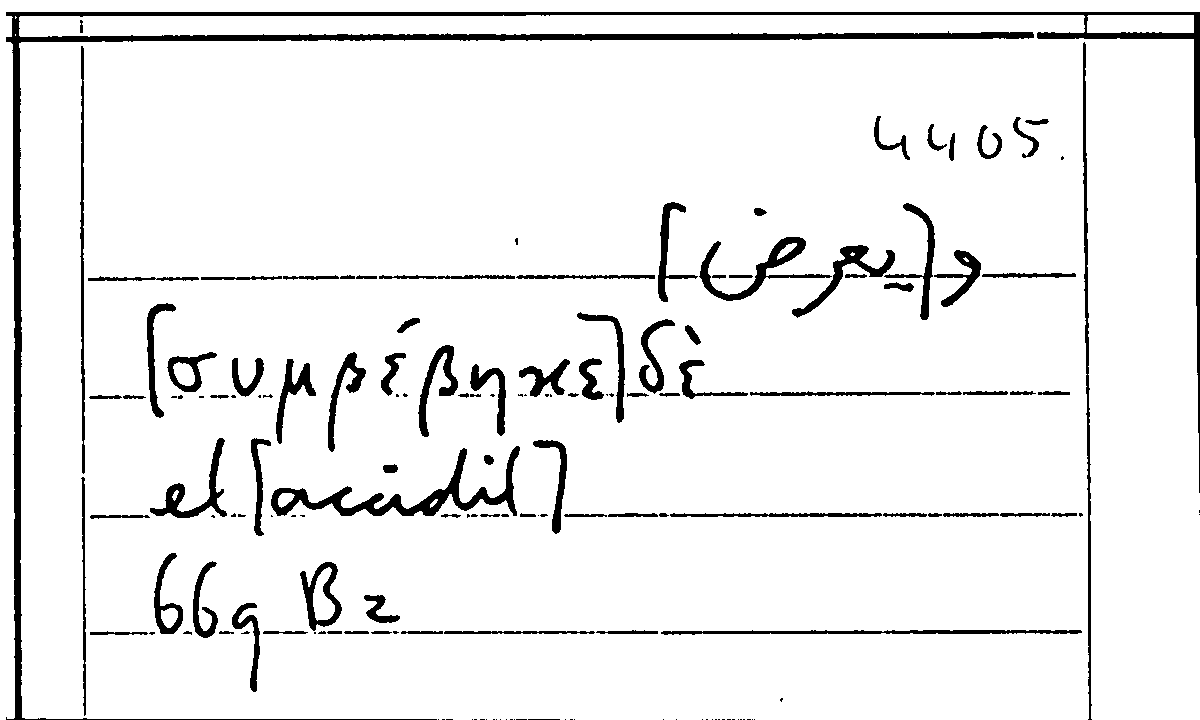 4405.
و[يعرض]
[συμβέβηκε]δὲ
et[accidit]
669 B2